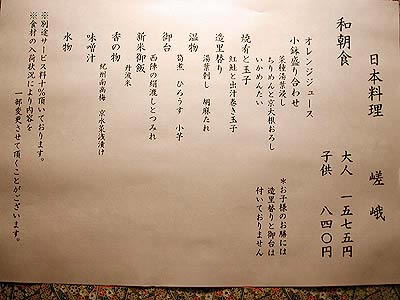 日本料理 嵯峨
和朝食
大人 一五七五円
子供 八四〇円
＊お子様のお膳には
造里替りと御台は
付いておりません
オレンジジュース
小鉢盛り合わせ
菜種湯葉浸し
ちりめんと京大根おろし
いかめんたい
焼肴と玉子
紅鮭と出汁巻き玉子
造里替り
湯葉刺し 胡麻たれ
温物
筍煮 ひろうす 小芋
御台
西陣の絹漉しとつみれ
新米御飯
丹波米
香の物
紀州南高梅 京水菜浅漬け
味噌汁
水物
※別途サービス料十％頂いております。
※食材の入荷状況により内容を
一部変更させて頂くことがございます。